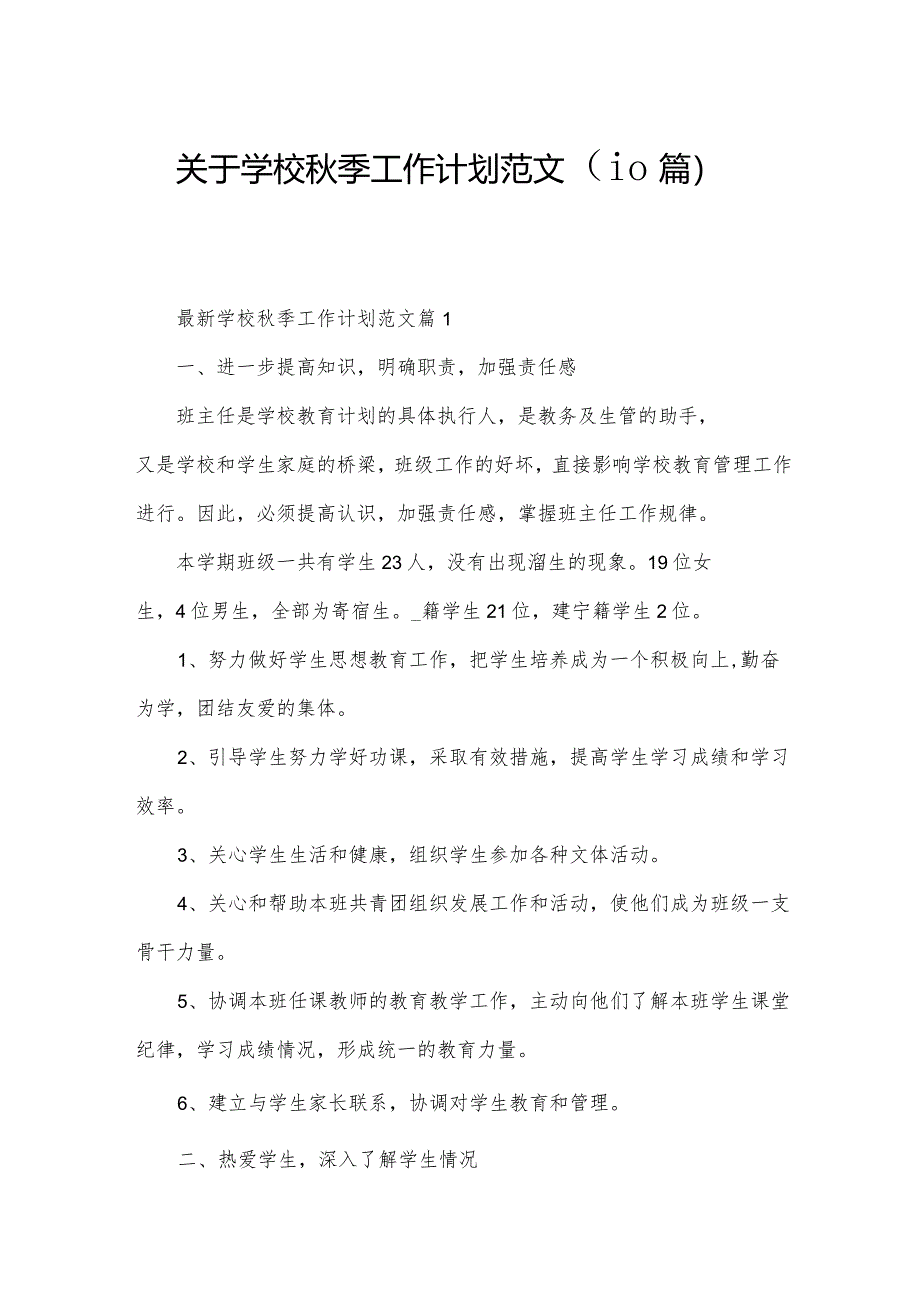 关于学校秋季工作计划范文（io 篇）
最新学校秋季工作计划范文篇 1
一、进一步提高知识，明确职责，加强责任感
班主任是学校教育计划的具体执行人，是教务及生管的助手，
又是学校和学生家庭的桥梁,班级工作的好坏,直接影响学校教育管理工作
进行。因此，必须提高认识，加强责任感，掌握班主任工作规律。
本学期班级一共有学生 23 人，没有出现溜生的现象。19 位女
生，4 位男生，全部为寄宿生。_籍学生 21 位，建宁籍学生 2 位。
1、努力做好学生思想教育工作，把学生培养成为一个积极向上,勤奋
为学，团结友爱的集体。
2、引导学生努力学好功课，采取有效措施，提高学生学习成绩和学习
效率。
3、关心学生生活和健康，组织学生参加各种文体活动。
4、关心和帮助本班共青团组织发展工作和活动，使他们成为班级一支
骨干力量。
5、协调本班任课教师的教育教学工作，主动向他们了解本班学生课堂
纪律，学习成绩情况，形成统一的教育力量。
6、建立与学生家长联系，协调对学生教育和管理。
二、热爱学生，深入了解学生情况